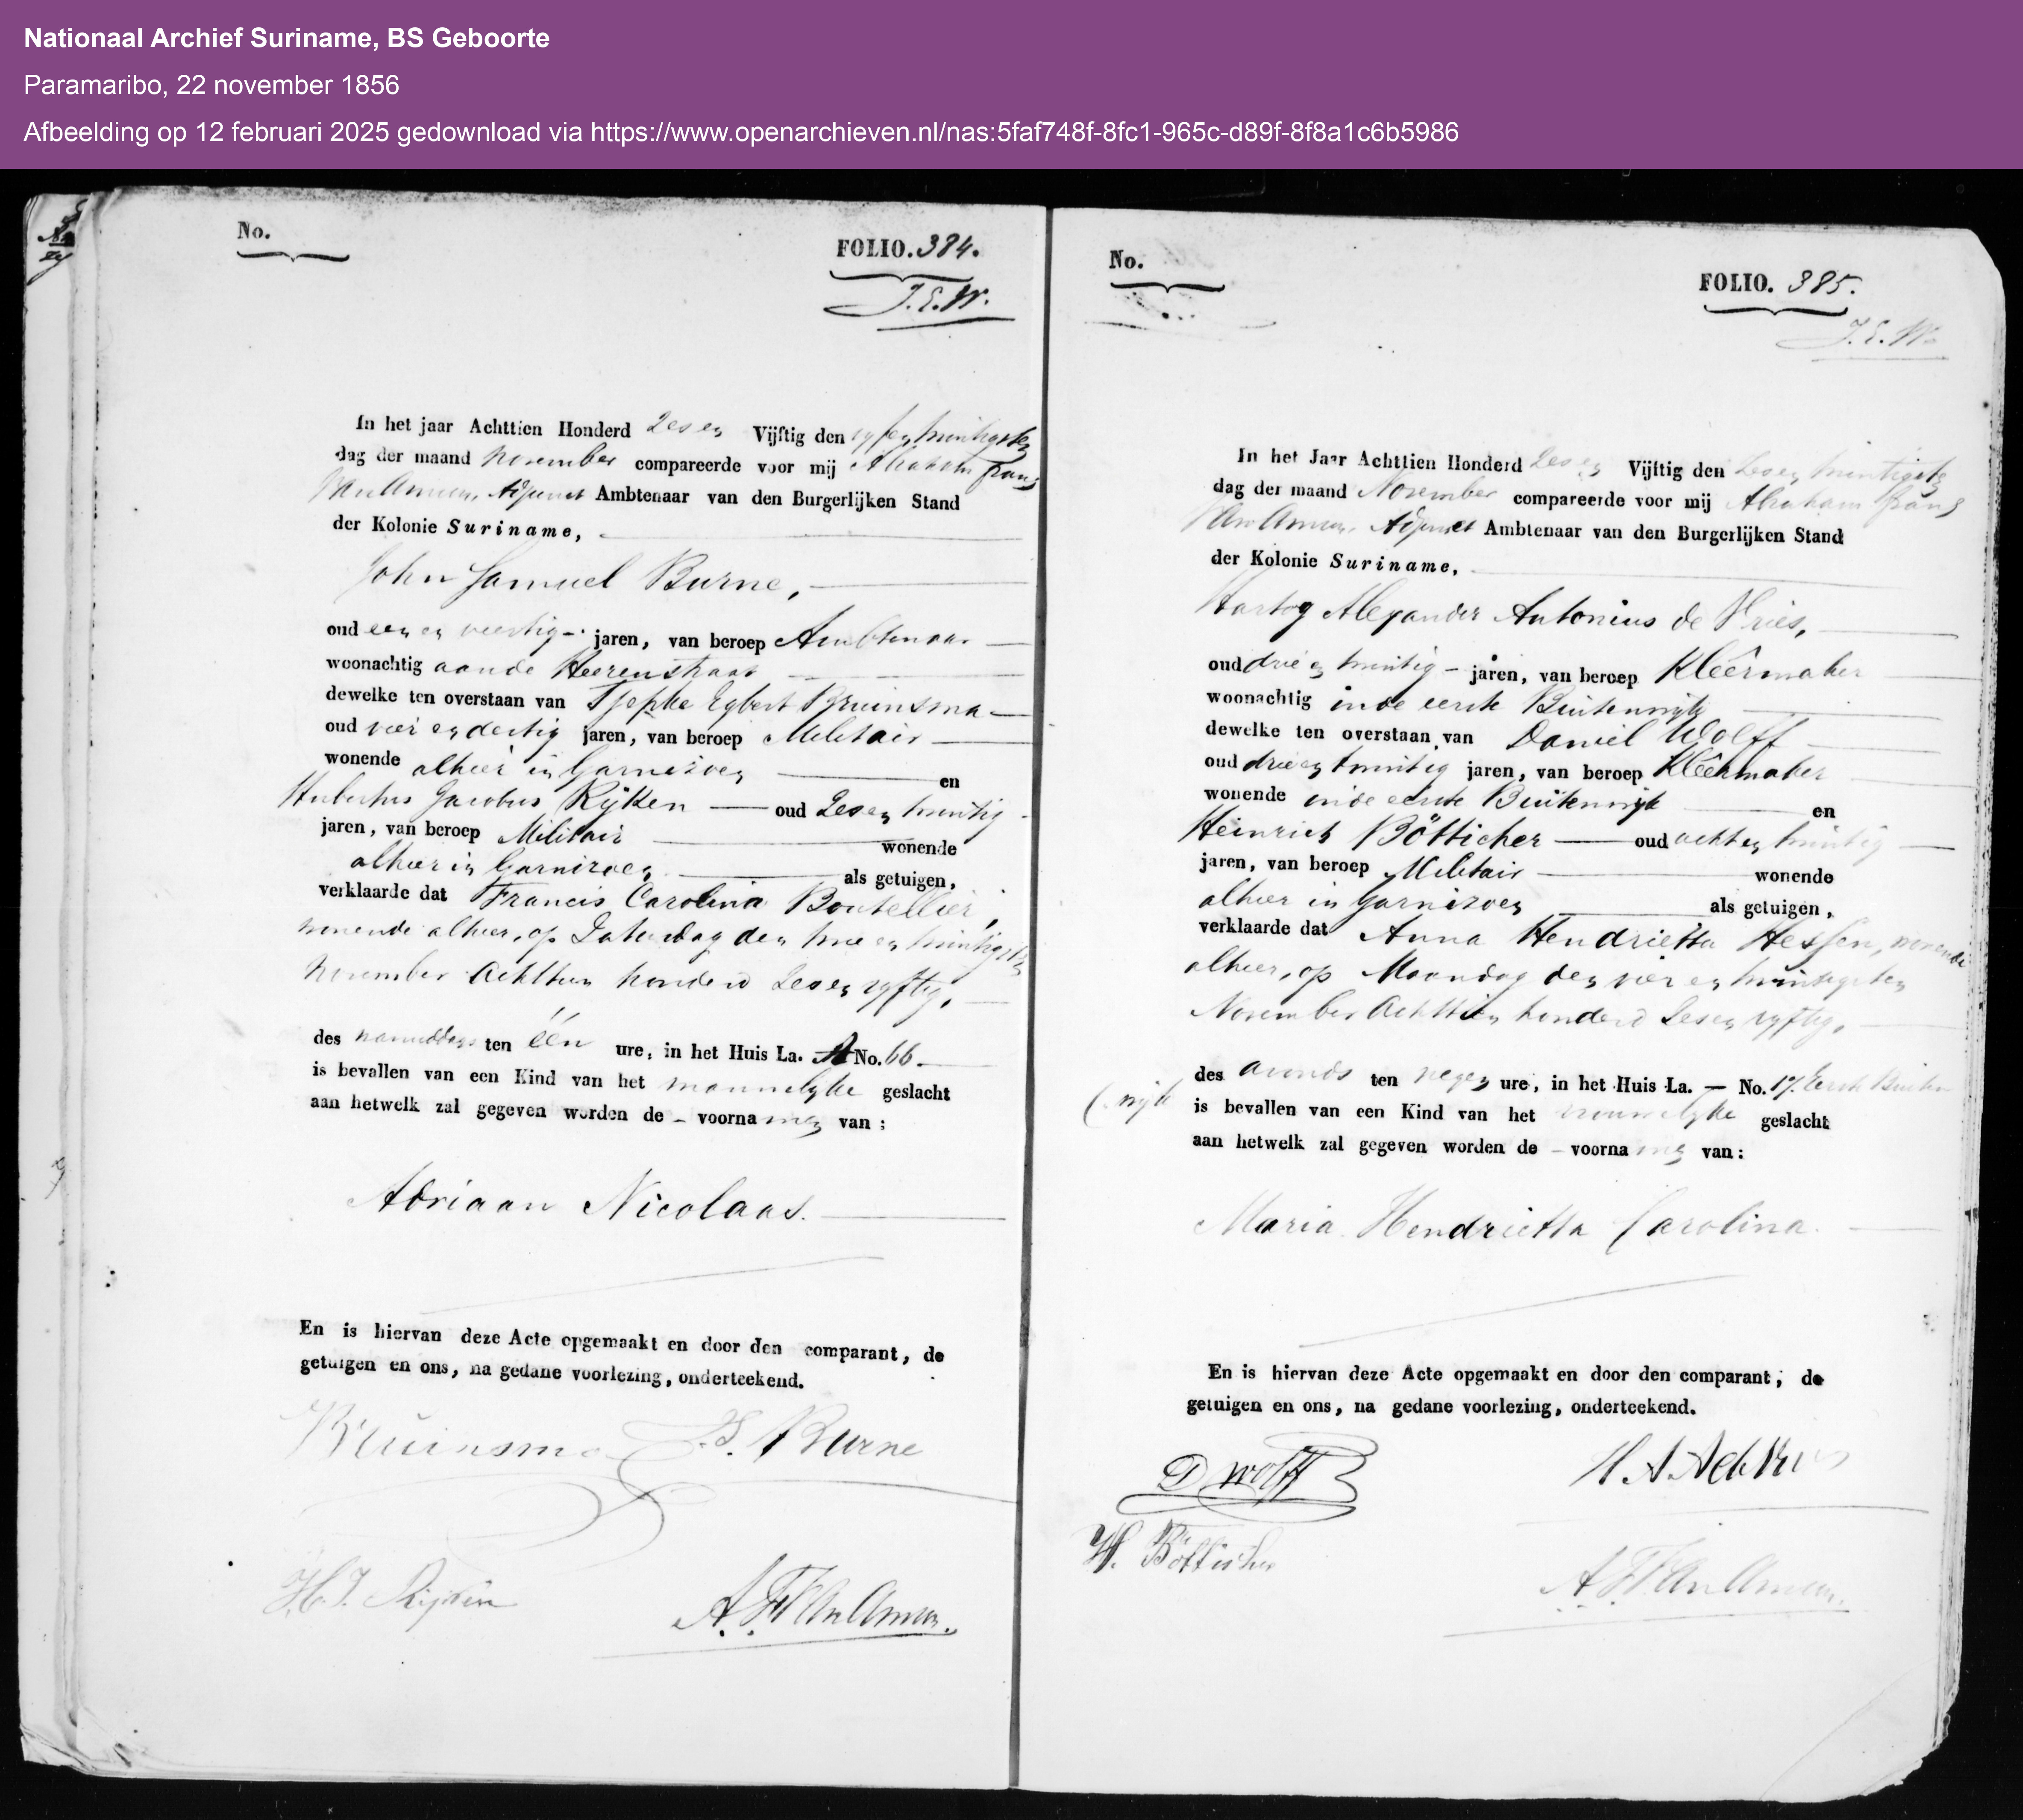 Nationaal Archief Suriname, BS Geboorte
Paramaribo, 22 november 1856
Afbeelding op 12 februari 2025 gedownload via https://www.openarchieven.nl/nas:5faf748f-8fc1-965c-d89f-8f8a1c6b5986
No.
FOLIO. 384.
J.E.W.
In het jaar Achttien Honderd Zes en Vijftig den vyf en twintigsten
dag der maand November compareerde voor mij Abraham Frans
Van Amson, Adjunct Ambtenaar van den Burgerlijken Stand
der Kolonie Suriname,
John Samuel Burne,
oud een en veertig jaren, van beroep Ambtenaar
woonachtig aan de Heerenstraat
dewelke ten overstaan van Tjepke Egbert Bruinsma
oud vier en dertig jaren, van beroep Militair
wonende alhier in Garnizoen en
Hubertus Jacobus Rijken oud Zes en twintig
jaren, van beroep Militair wonende
alhier in Garnizoen als getuigen,
verklaarde dat Francis Carolina Boutellier,
wonende alhier, op Zaturdag den twee en twintigsten
November Achttien honderd Zes en vyftig,
des namiddags ten één ure, in het Huis La. A No. 66
is bevallen van een Kind van het mannelyke geslacht
aan hetwelk zal gegeven worden de voornamen van:
Adriaan Nicolaas.
En is hiervan deze Acte opgemaakt en door den comparant, de
getuigen en ons, na gedane voorlezing, onderteekend.
Bruinsma J.S. Burne
H.J. Rijken
A.F. Van Amson
No.
FOLIO. 385.
J.E.W.
In het Jaar Achttien Honderd Zes en Vijftig den Zes en twintigsten
dag der maand November compareerde voor mij Abraham Frans
Van Amson, Adjunct Ambtenaar van den Burgerlijken Stand
der Kolonie Suriname,
Hartog Alexander Antonius de Vries,
oud drie en twintig jaren, van beroep Kleêrmaker
woonachtig in de eerste Buitenwyk
dewelke ten overstaan van Daniel Wolff
oud drie en twintig jaren, van beroep Kleêrmaker
wonende in de eerste Buitenwyk en
Heinrich Bötticher oud acht en twintig
jaren, van beroep Militair wonende
alhier in Garnizoen als getuigen,
verklaarde dat Anna Hendrietta Hessen, wonende
alhier, op Maandag den vier en twintigsten
November Achttien honderd Zes en vyftig,
des avonds ten negen ure, in het Huis La. — No. 17. Eerste Buiten
(wyk
is bevallen van een Kind van het vrouwelyke geslacht
aan hetwelk zal gegeven worden de voornamen van:
Maria Hendrietta Carolina.
En is hiervan deze Acte opgemaakt en door den comparant, de
getuigen en ons, na gedane voorlezing, onderteekend.
D Wolff H A A de Vries
H. Bötticher
A.F. Van Amson